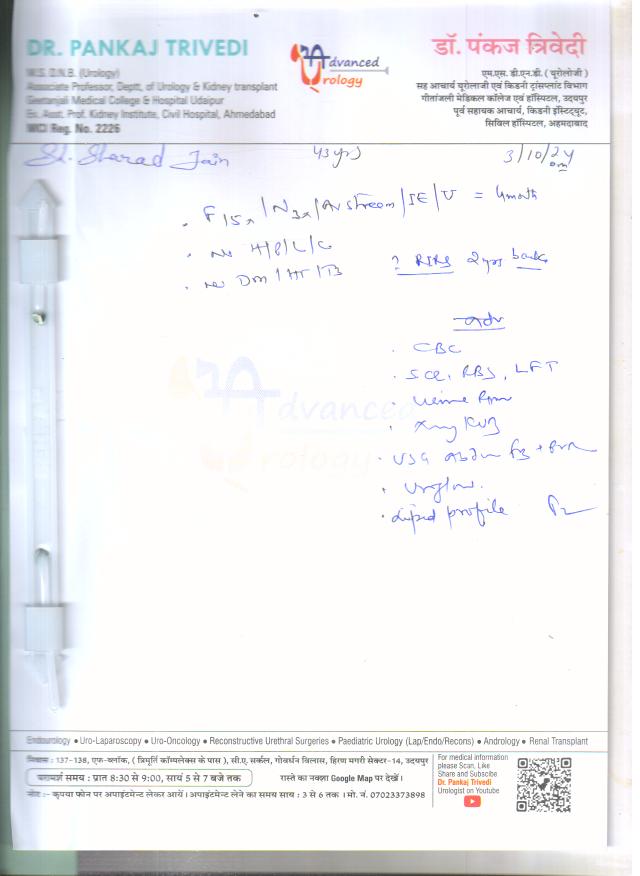 DR. PANKAJ TRIVEDI
M.S. D.N.B. (Urology)
Associate Professor, Deptt. of Urology & Kidney transplant
Geetanjali Medical College & Hospital Udaipur
Ex. Asst. Prof. Kidney Institute, Civil Hospital, Ahmedabad
MCI Reg. No. 2226
Advanced
Urology
डॉ. पंकज त्रिवेदी
एम.एस. डी.एन.बी. ( यूरोलोजी )
सह आचार्य यूरोलोजी एवं किडनी ट्रांसप्लांट विभाग
गीतांजली मेडिकल कॉलेज एवं हॉस्पिटल, उदयपुर
पूर्व सहायक आचार्य, किडनी इंस्टिट्यूट,
सिविल हॉस्पिटल, अहमदाबाद
Sharad Jain 43 yrs 3/10/24
F 15x / N 3x / Av stream / IE / U = 4 month
H/B/L/C
DM / HT / TB ? RIRS 2 yrs back
adv
CBC
LFT
Xray KUB
Lipid profile
Advanced
Urology
Endourology • Uro-Laparoscopy • Uro-Oncology • Reconstructive Urethral Surgeries • Paediatric Urology (Lap/Endo/Recons) • Andrology • Renal Transplant
निवास : 137-138, एफ-ब्लॉक, ( त्रिमूर्ति कॉम्पलेक्स के पास ), सी.ए. सर्कल, गोवर्धन विलास, हिरण मगरी सेक्टर-14, उदयपुर
परामर्श समय : प्रात 8:30 से 9:00, सायं 5 से 7 बजे तक रास्ते का नक्शा Google Map पर देखें।
नोट :- कृपया फोन पर अपाइंटमेन्ट लेकर आयें। अपाइंटमेन्ट लेने का समय सायं : 3 से 6 तक । मो. नं. 07023373898
For medical information
please Scan, Like
Share and Subscibe
Dr. Pankaj Trivedi
Urologist on Youtube